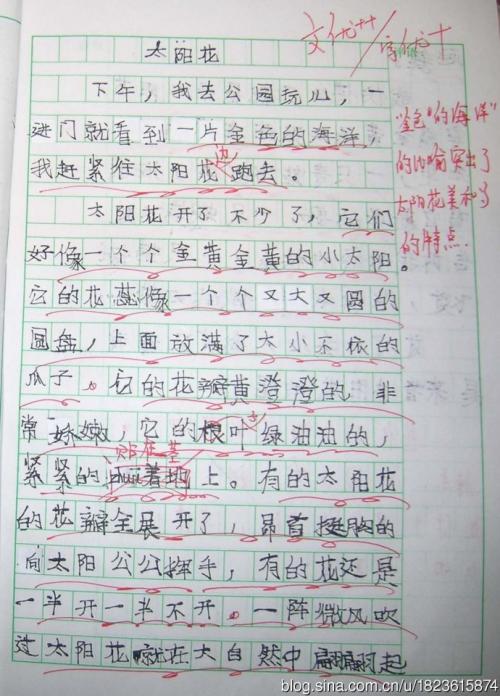 太阳花
文优++/字优+
下午，我去公园玩儿，一
进门就看到一片金色的海洋，
我赶紧往太阳花边跑去。
太阳花开了不少了，它们
好像一个个金黄金黄的小太阳。
它的花蕊像一个个又大又圆的
圆盘，上面放满了大小不依的
瓜子。它的花瓣黄澄澄的，非
常娇嫩，它的根叶子绿油油的，
紧紧的 着地上。有的太阳花
的花瓣全展开了，昂首挺胸的
向太阳公公挥手，有的花还是
一半开一半不开。一阵微风吹
过太阳花就在大自然中翩翩起
"金色的海洋"
的比喻突出了
太阳花美和多
的特点.
blog.sina.com.cn/u/1823615874